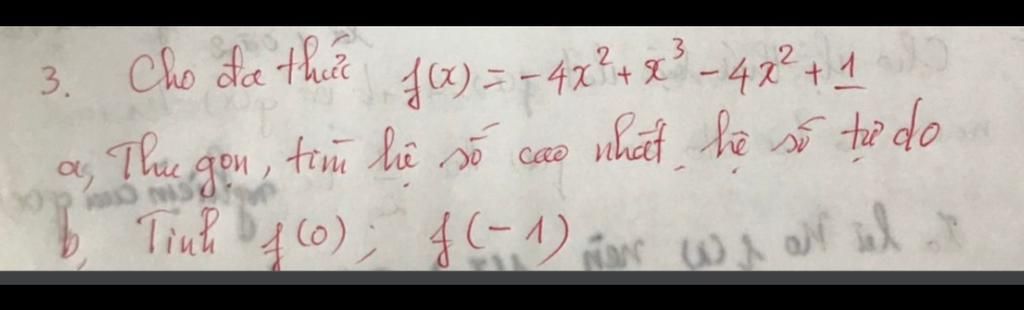 3. Cho đa thức f(x) = - 4x² + x³ - 4x² + 1
a, Thu gọn, tìm hệ số cao nhất, hệ số tự do
b, Tính f(0); f(-1)